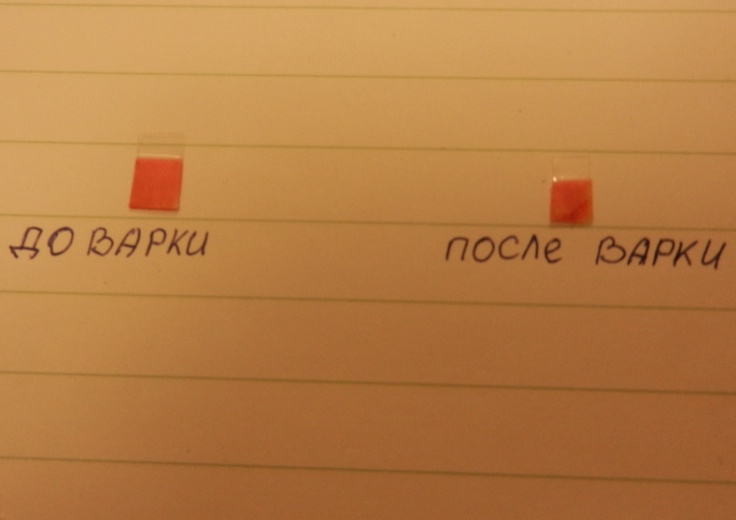 ДО ВАРКИ
ПОСЛЕ ВАРКИ